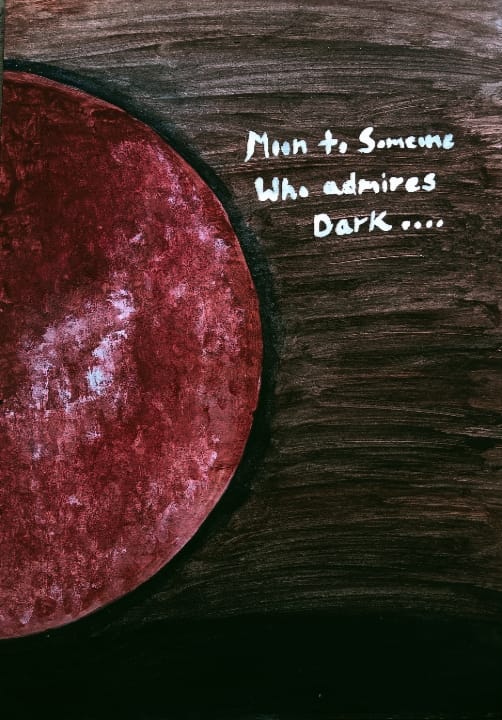 Moon to Someone
Who admires
Dark....